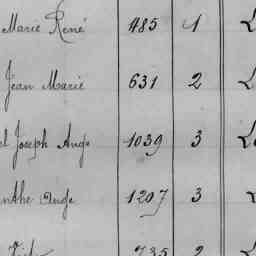 Marie René 485 1
Jean Marie 631 2
el Joseph Ange 1039 3
nthe Ange 1207 3
735 2